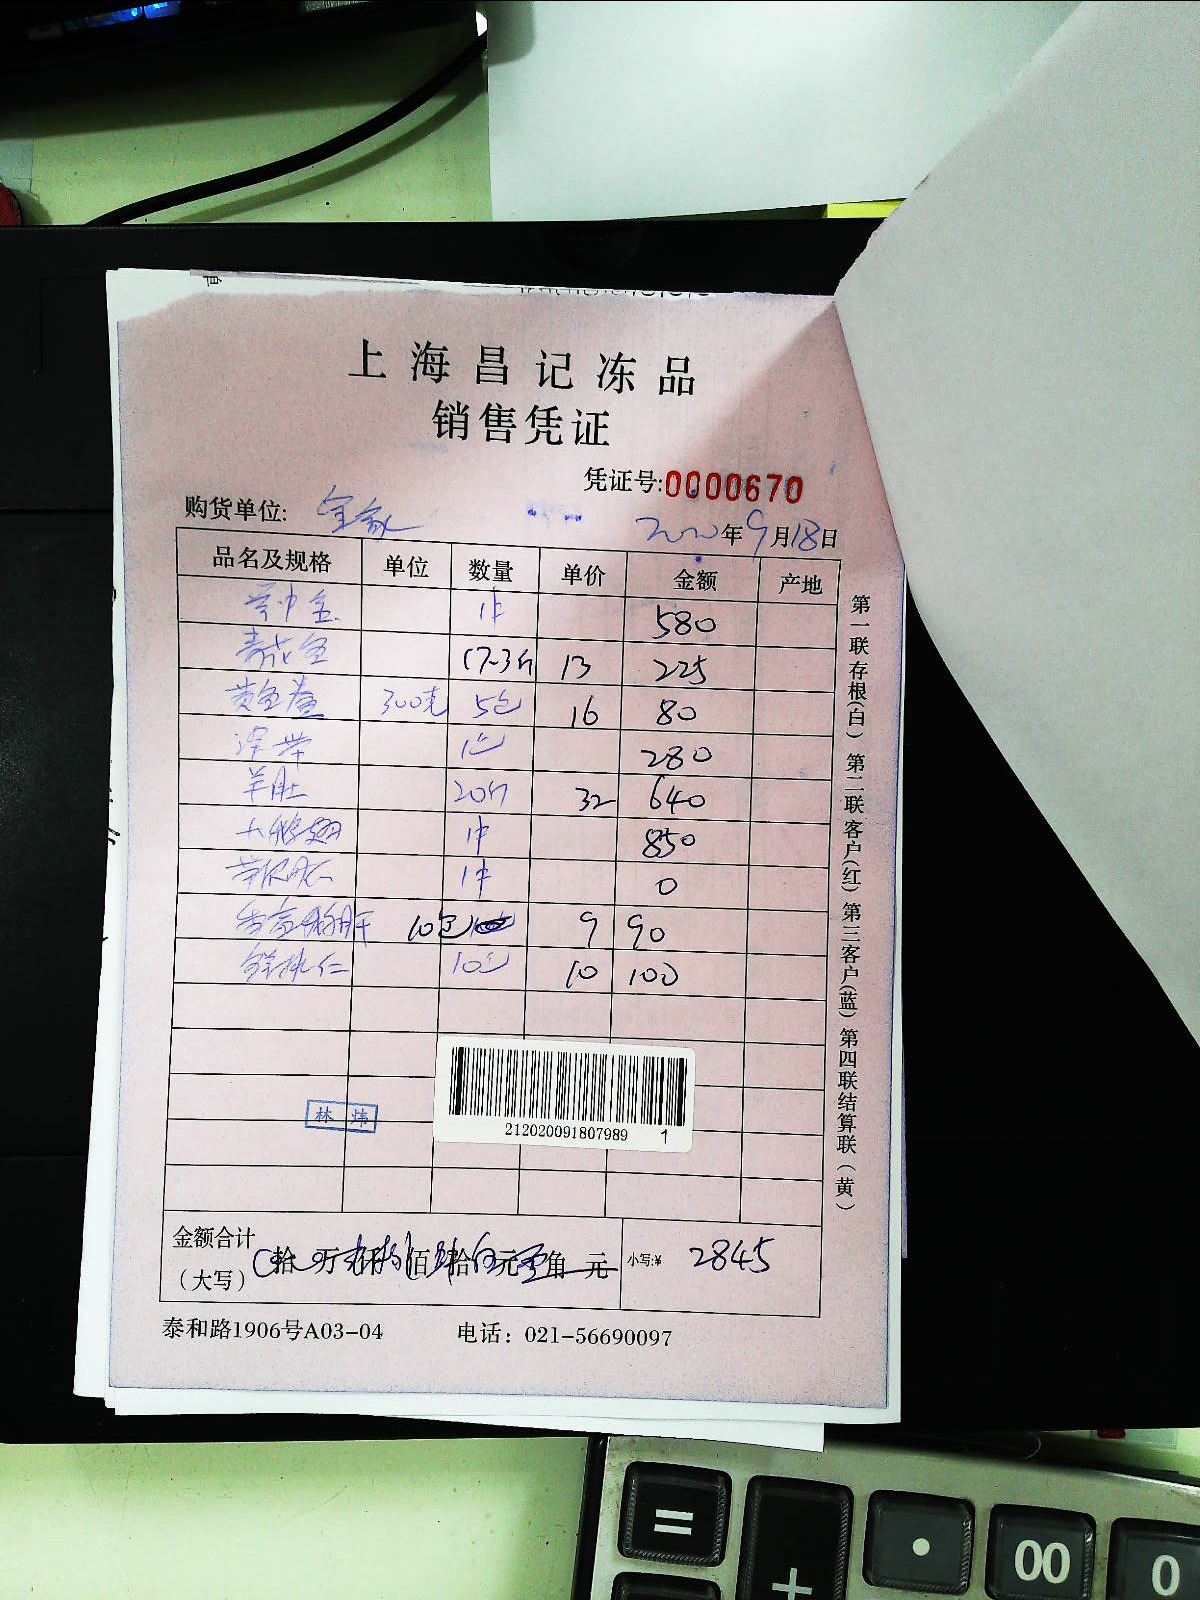 上海昌记冻品
销售凭证
凭证号:0000670
购货单位:
2020年9月18日
品名及规格 单位 数量 单价 金额 产地
1件 580
17.3斤 13 225
黄鱼卷 300克 5包 16 80
280
羊肚 20斤 32 640
大鹅翅 1件 850
1件 0
10包 9 90
鲜桃仁 10包 10 100
212020091807989 1
林 炜
金额合计
(大写) 拾 万 仟 佰 拾 元 角 元 小写:¥ 2845
泰和路1906号A03-04 电话：021-56690097
第一联存根(白) 第二联客户(红) 第三客户(蓝) 第四联结算联(黄)
=
+
.
00
0